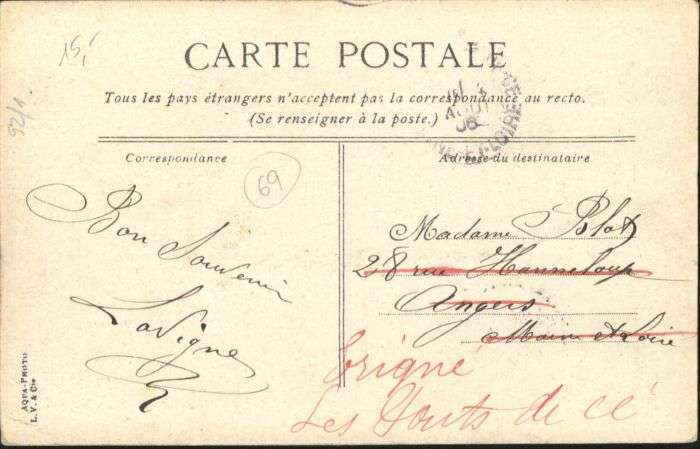 15,-
92/1
CARTE POSTALE
Tous les pays étrangers n'acceptent pas la correspondance au recto.
(Se renseigner à la poste.)
Correspondance
69
Bon Souvenir
Lavigne
AQUA-PHOTO
L. V. & Cie
Adresse du destinataire
Madame Blot
28 rue Hanneloup
Angers
Maine et Loire
Erigné
Les Ponts de Cé